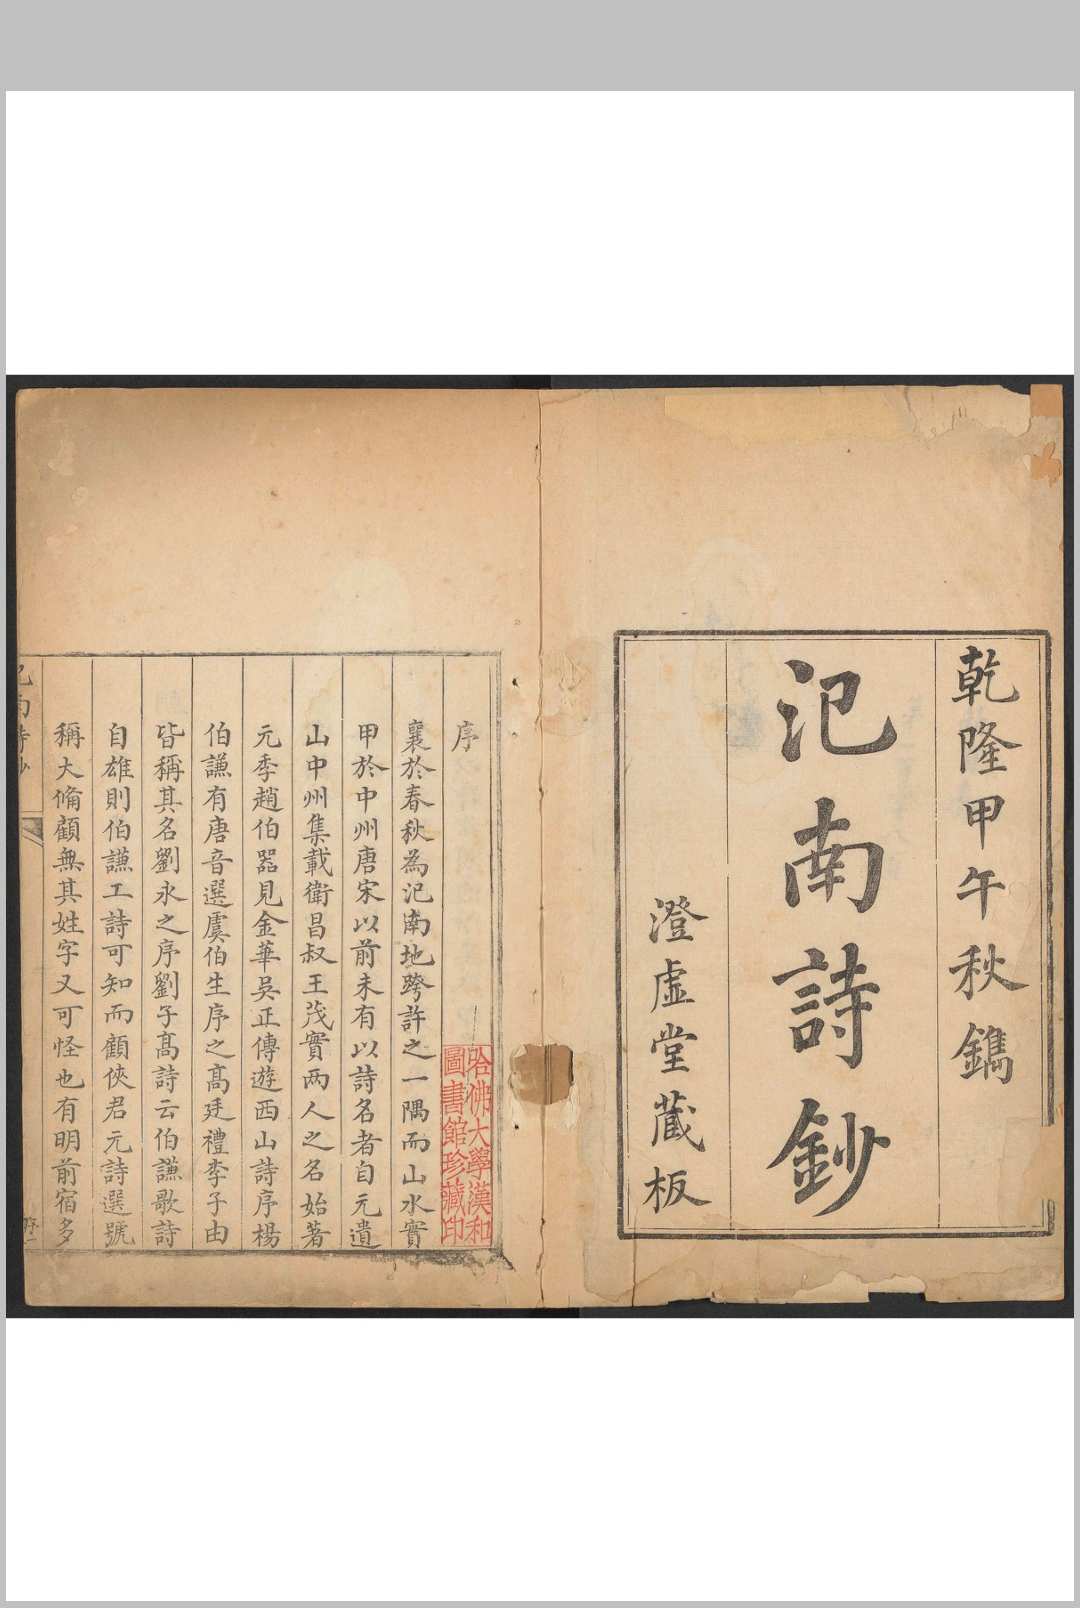 乾隆甲午秋鐫
氾南詩鈔
澄虛堂藏板
序
襄於春秋為氾南地跨許之一隅而山水實
甲於中州唐宋以前未有以詩名者自元遺
山中州集載衛昌叔王茂實两人之名始著
元季趙伯器見金華吳正傳遊西山詩序楊
伯謙有唐音選虞伯生序之髙廷禮李子由
皆稱其名劉永之序劉子髙詩云伯謙歌詩
自雄則伯謙工詩可知而顧俠君元詩選號
稱大偹顧無其姓字又可怪也有明前宿多
哈佛大學漢和
圖書館珍藏印